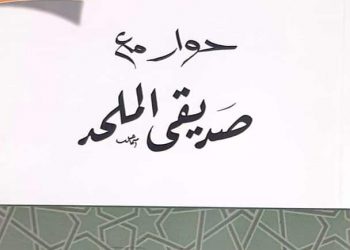 حوار مع
صَديقى الملحد